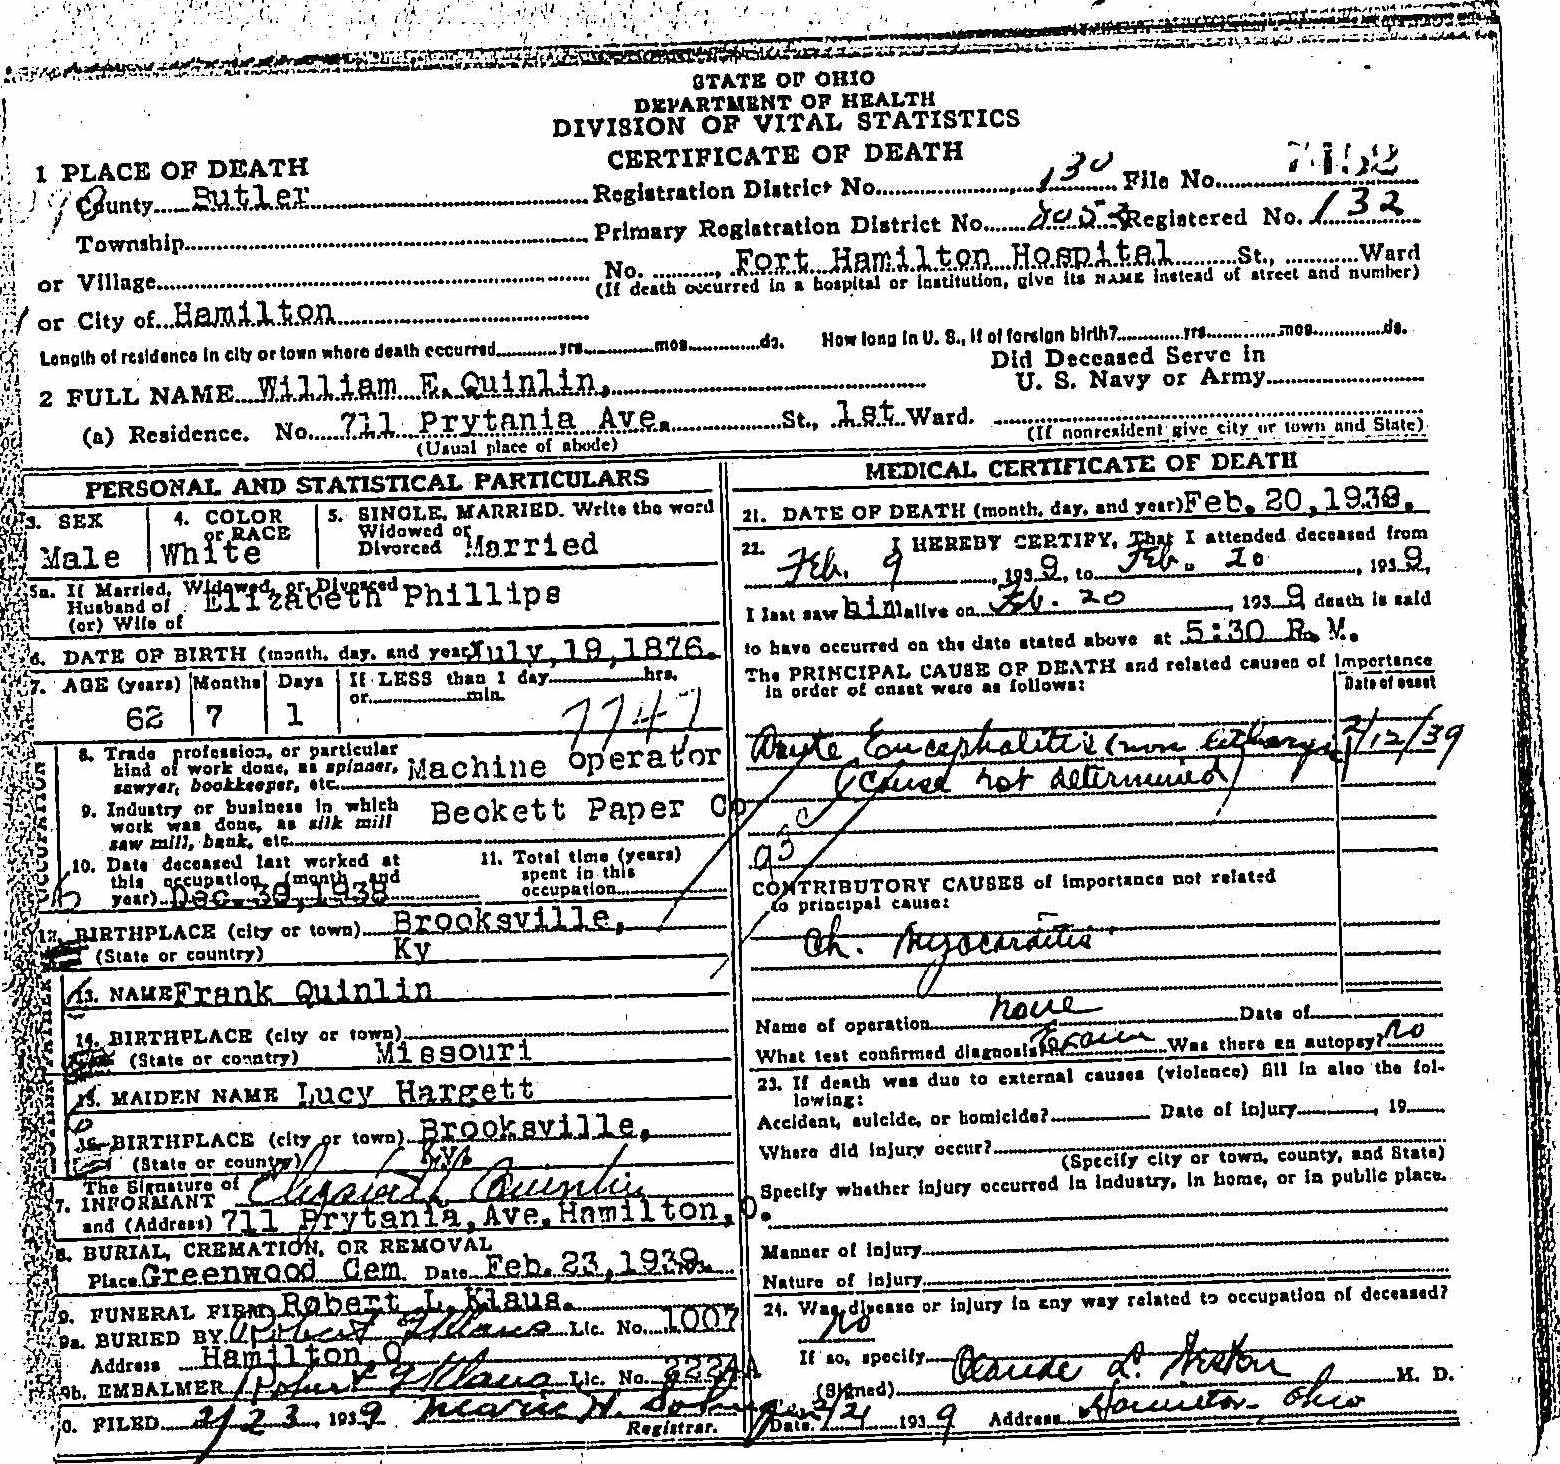 STATE OF OHIO
DEPARTMENT OF HEALTH
DIVISION OF VITAL STATISTICS
CERTIFICATE OF DEATH
1 PLACE OF DEATH
County Butler
Registration District No. 130 File No.
Township
Primary Registration District No. 8053 Registered No. 132
or Village
No. , Fort Hamilton Hospital St., Ward
(If death occurred in a hospital or institution, give its NAME instead of street and number)
or City of Hamilton
Length of residence in city or town where death occurred yrs. mos. ds. How long in U. S., if of foreign birth? yrs. mos. ds.
2 FULL NAME William E. Quinlin,
Did Deceased Serve in
U. S. Navy or Army
(a) Residence. No. 711 Prytania Ave. St., 1st Ward.
(Usual place of abode)
(If nonresident give city or town and State)
PERSONAL AND STATISTICAL PARTICULARS
3. SEX
Male
4. COLOR
or RACE
White
5. SINGLE, MARRIED. Write the word
Widowed or
Divorced Married
5a. If Married, Widowed, or Divorced
Husband of Elizabeth Phillips
(or) Wife of
6. DATE OF BIRTH (month, day, and year) July,19,1876.
7. AGE (years) Months Days If LESS than 1 day hrs.
or min.
62 7 1
7747
8. Trade profession, or particular
kind of work done, as spinner, Machine operator
sawyer, bookkeeper, etc.
9. Industry or business in which Beckett Paper Co
work was done, as silk mill
saw mill, bank, etc.
10. Date deceased last worked at
this occupation (month and
year) Dec. 30,1938
11. Total time (years)
spent in this
occupation
12. BIRTHPLACE (city or town) Brooksville,
(State or country) Ky
13. NAME Frank Quinlin
14. BIRTHPLACE (city or town)
(State or country) Missouri
15. MAIDEN NAME Lucy Hargett
16. BIRTHPLACE (city or town) Brooksville,
(State or country) Ky.
The Signature of
7. INFORMANT Elizabeth Quinlin
and (Address) 711 Prytania,Ave.Hamilton,O.
8. BURIAL, CREMATION, OR REMOVAL
Place Greenwood Cem. Date Feb.23,1939.
9. FUNERAL FIRM Robert L.Klaus.
9a. BURIED BY Lic. No. 1007
Address Hamilton O
9b. EMBALMER Lic. No. 222AA
0. FILED 2/23, 1939
Registrar.
MEDICAL CERTIFICATE OF DEATH
21. DATE OF DEATH (month, day, and year) Feb. 20,1939.
22. I HEREBY CERTIFY, That I attended deceased from
Feb. 9, 1939, to Feb. 20, 1939,
I last saw him alive on Feb. 20, 1939, death is said
to have occurred on the date stated above at 5:30 P. M.
The PRINCIPAL CAUSE OF DEATH and related causes of importance
in order of onset were as follows:
Date of onset
Acute Encephalitis (non 2/12/39
(cause not determined)
CONTRIBUTORY CAUSES of importance not related
to principal cause:
Ch. Myocarditis
Name of operation none Date of
What test confirmed diagnosis? Exam Was there an autopsy? No
23. If death was due to external causes (violence) fill in also the fol-
lowing:
Accident, suicide, or homicide? Date of injury , 19
Where did injury occur?
(Specify city or town, county, and State)
Specify whether injury occurred in industry, in home, or in public place.
Manner of injury
Nature of injury
24. Was disease or injury in any way related to occupation of deceased?
No
If so, specify
(Signed) Claude L. M. D.
Date. 2/21 1939 Address Hamilton, Ohio